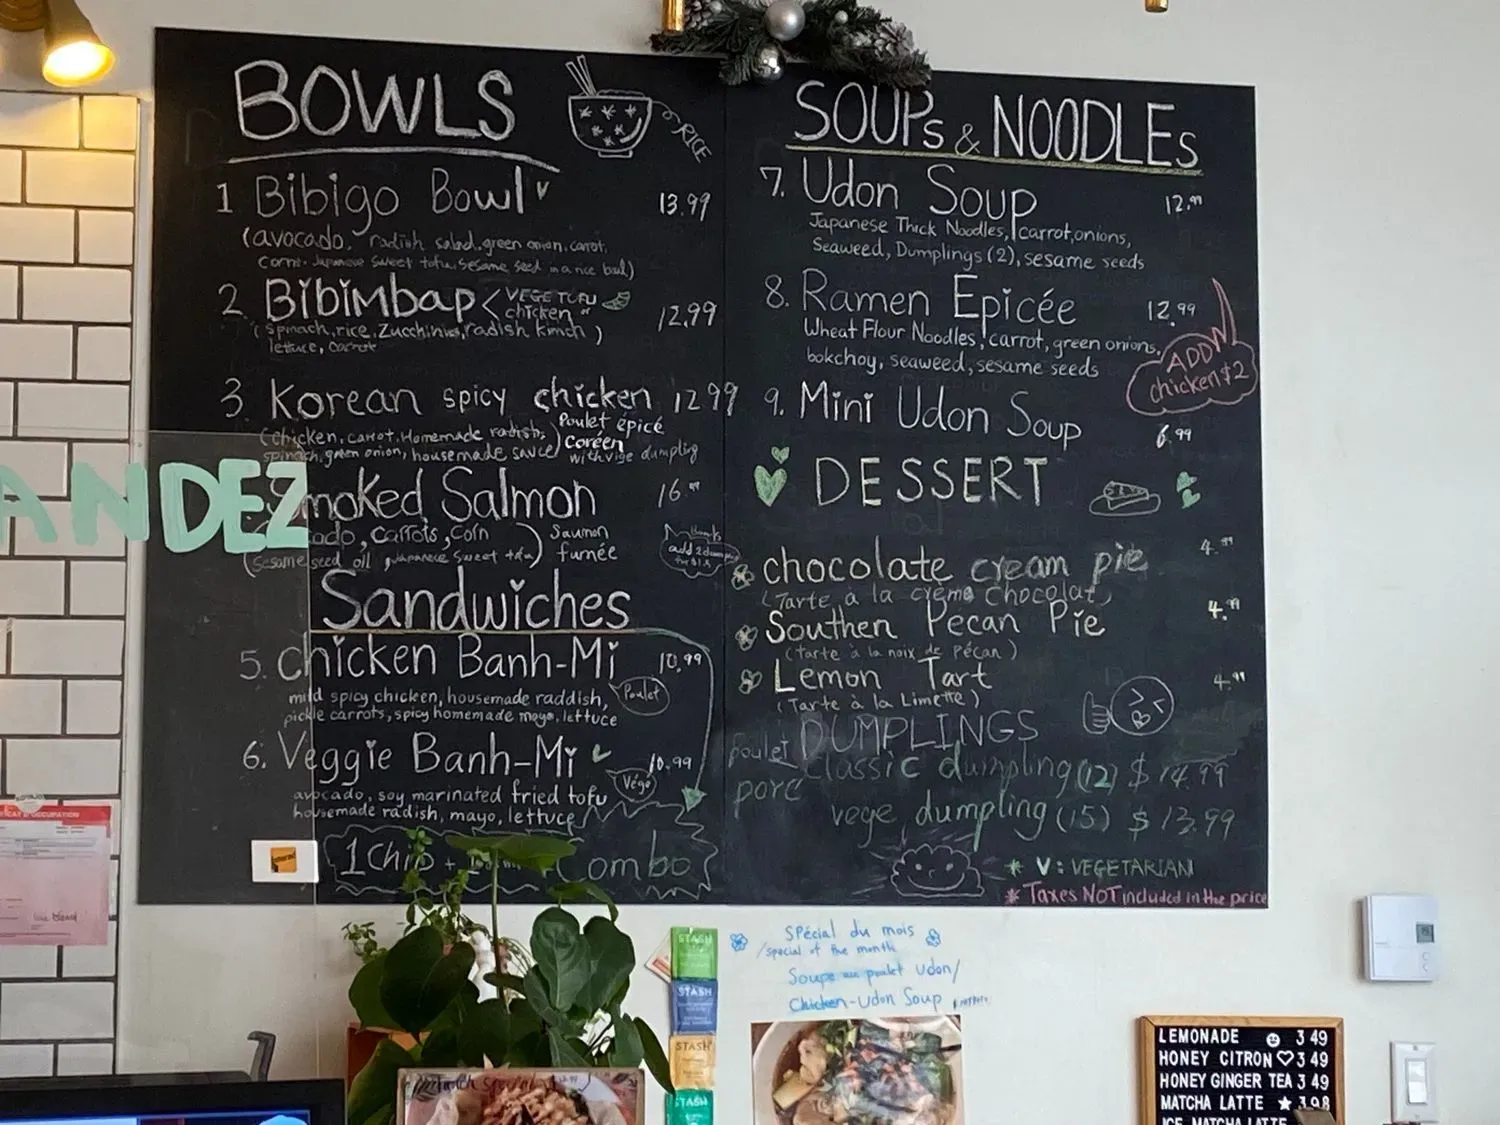 BOWLS
RICE
1 Bibigo Bowl v 13.99
(avocado, radish salad, green onion, carrot,
corn, Japanese sweet tofu, sesame seed in a rice bowl)
2 Bibimbap < VEGE TOFU
chicken or
12.99
(spinach, rice, Zucchinis, radish kimchi)
lettuce, carrot
3 Korean spicy chicken 12 99
(chicken, carrot, Homemade radish,
spinach, green onion, housemade sauce)
Poulet épicé
Coréen
with vige dumpling
Smoked Salmon 16.99
ado, carrots, corn
(sesame seed oil, Japanese sweet tofu)
Saumon
fumée
add 2 dumpling
for $1.5
ANDEZ
Sandwiches
5. chicken Banh-Mi 10.99
mild spicy chicken, housemade raddish,
pickle carrots, spicy homemade mayo, lettuce
Poulet
6. Veggie Banh-Mi v 10.99
avocado, soy marinated fried tofu
housemade radish, mayo, lettuce
Végé
1 Chip + Combo
SOUPs & NOODLEs
7. Udon Soup 12.99
Japanese Thick Noodles, carrot, onions,
Seaweed, Dumplings (2), sesame seeds
8. Ramen Epicée 12.99
Wheat Flour Noodles, carrot, green onions,
bokchoy, seaweed, sesame seeds
ADD
chicken $2
9. Mini Udon Soup 6.99
DESSERT
chocolate cream pie 4.99
(Tarte à la crème chocolat)
Southen Pecan Pie 4.99
(tarte à la noix de Pécan)
Lemon Tart 4.99
(Tarte à la Limette)
DUMPLINGS
poulet
porc
classic dumpling (12) $ 14.99
vege dumpling (15) $ 13.99
* V: VEGETARIAN
* Taxes NOT included in the price
SPécial du mois
/special of the month
Soupe au poulet udon/
Chicken-Udon Soup
STASH
STASH
STASH
STASH
LEMONADE 3 49
HONEY CITRON 3 49
HONEY GINGER TEA 3 49
MATCHA LATTE 3.98
ICE MATCHA LATTE